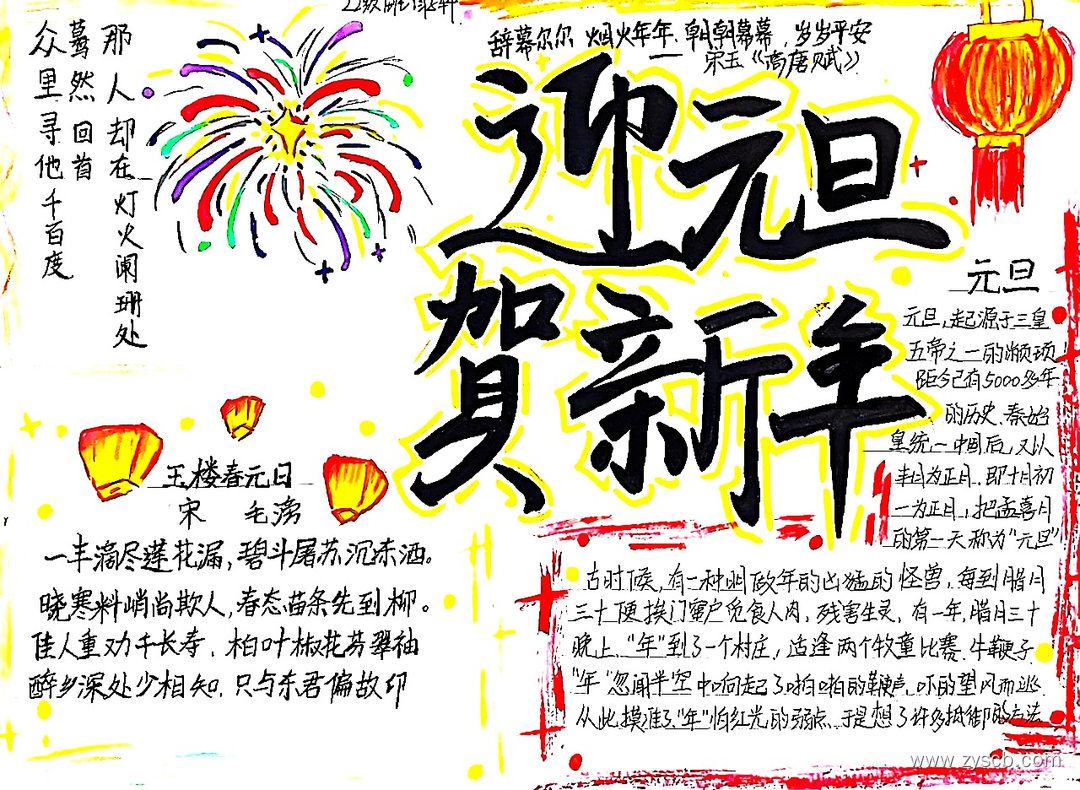 众里寻他千百度
蓦然回首
那人却在灯火阑珊处
辞暮尔尔 烟火年年、朝朝暮暮，岁岁平安
宋玉《高唐赋》
迎元旦
贺新年
元旦
元旦，起源于三皇
五帝之一的颛顼
距今已有5000多年
的历史、秦始
皇统一中国后，又以
丰日为正月、即十月初
一为正月，把孟喜月
的第一天称为"元旦"
玉楼春元日
宋 毛滂
一丰滴尽莲花漏，碧斗屠苏沉冻酒。
晓寒料峭尚欺人，春态苗条先到柳。
佳人重劝千长寿、柏叶椒花芬翠袖
醉乡深处少相知、只与东君偏故印
古时候，有一种叫做年的凶猛的怪兽，每到腊月
三十便挨门窜户觅食人肉，残害生灵，有一年，腊月三十
晚上，"年"到了一个村庄，适逢两个牧童比赛牛鞭子
"年"忽闻半空中响起了啪啪的鞭声，吓的望风而逃
从此摸准了"年"怕红光的弱点、于是想了许多抵御的方法
www.zyscb.com